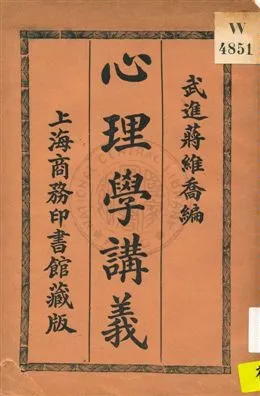 W
4851
武進蔣維喬編
心理學講義
上海商務印書館藏版